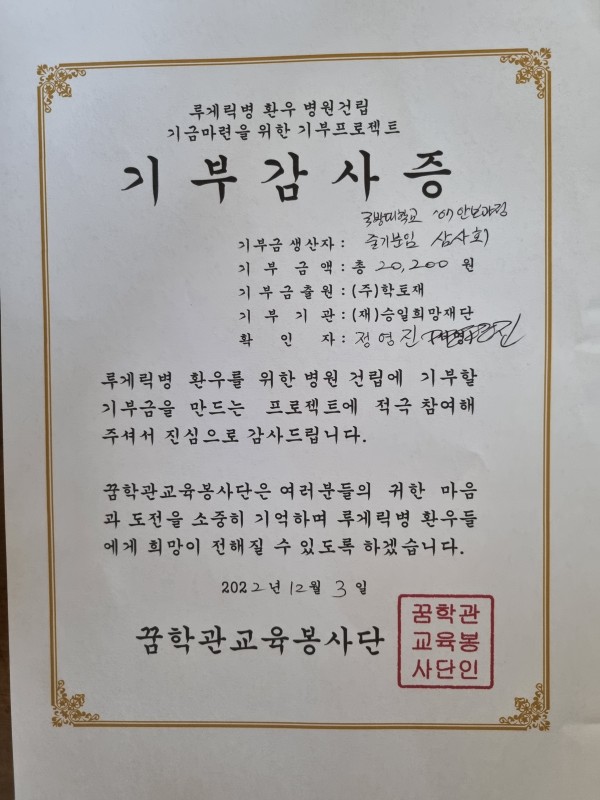 루게릭병 환우 병원건립
기금마련을 위한 기부프로젝트
기부감사증
국방대학교 '07안보과정
기부금생산자 : 줄기분임 삼사회
기부금액 : 총 20,200 원
기부금출원 : (주)학토재
기부기관 : (재)승일희망재단
확인자 : 정영진
루게릭병 환우를 위한 병원 건립에 기부할
기부금을 만드는 프로젝트에 적극 참여해
주셔서 진심으로 감사드립니다.
꿈학관교육봉사단은 여러분들의 귀한 마음
과 도전을 소중히 기억하며 루게릭병 환우들
에게 희망이 전해질 수 있도록 하겠습니다.
2022년 12월 3일
꿈학관교육봉사단
꿈학관
교육봉
사단인